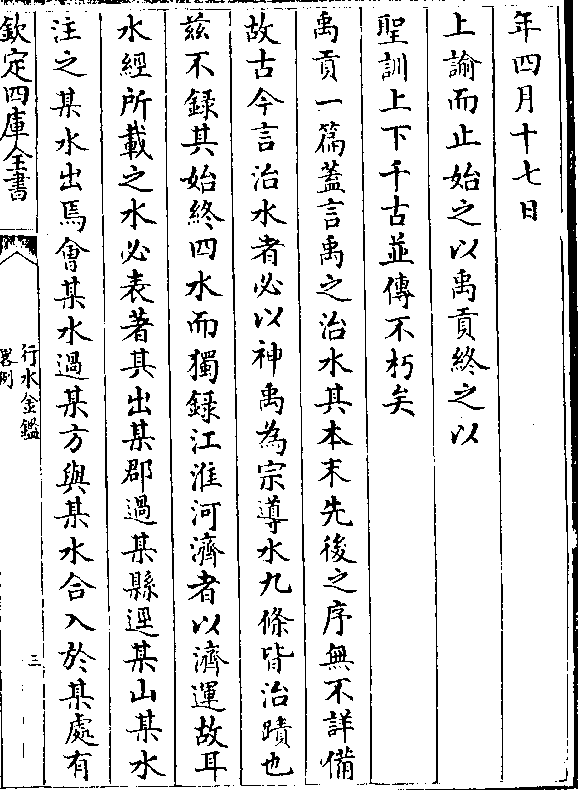 年四月十七日
上諭而止始之以禹貢終之以
聖訓上下千古並傳不朽矣
禹貢一篇蓋言禹之治水其本末先後之序無不詳備
故古今言治水者必以神禹為宗導水九條皆治蹟也
茲不錄其始終四水而獨錄江淮河濟者以濟運故耳
水經所載之水必表著其出某郡過某縣逕某山某水
注之某水出焉會某水過某方與某水合入於某處有
欽定四庫全書
行水金鑑
畧例
三